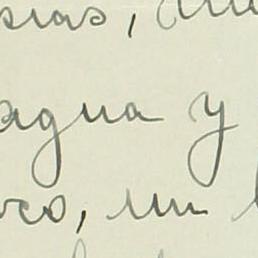 sias,
agua y
oco, un